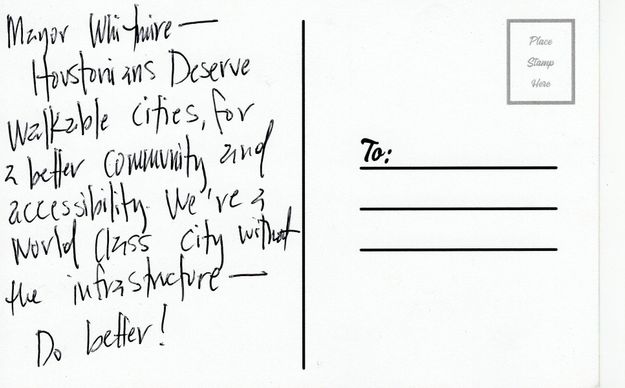 Mayor Whitmire —
Houstonians Deserve
walkable cities, for
a better community and
accessibility. We're a
world class city without
the infrastructure —
Do better!
Place
Stamp
Here
To: